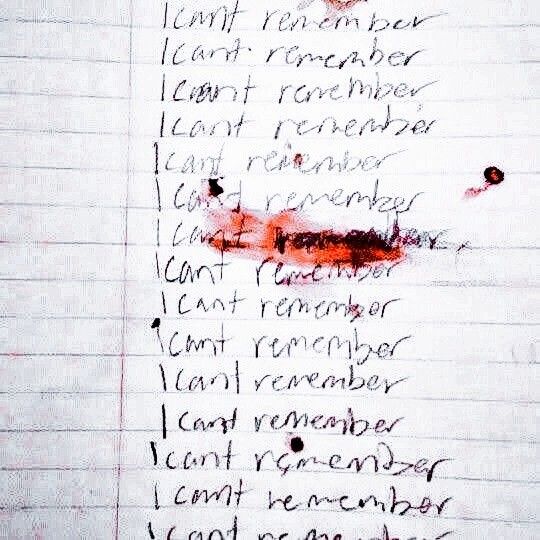 I cant remember
I cant remember
I cant remember
I cant remember
I cant remember
I cant remember
I cant
I cant remember
I cant remember
I cant remember
I cant remember
I cant remember
I cant remember
I cant remember
I cant remember